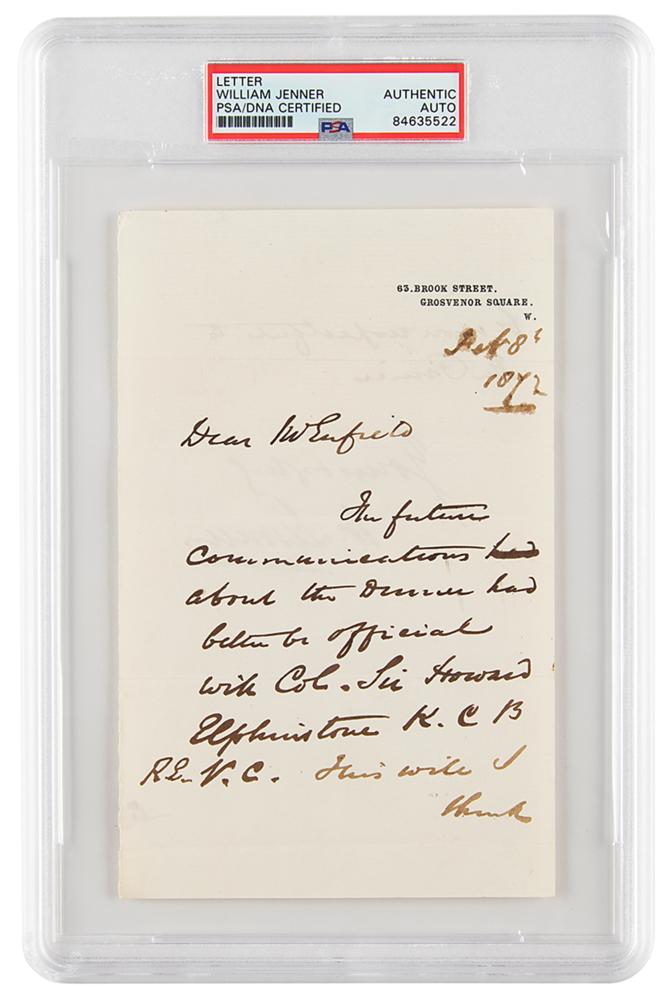 LETTER
WILLIAM JENNER
PSA/DNA CERTIFIED
AUTHENTIC
AUTO
84635522
PSA
63.BROOK STREET.
GROSVENOR SQUARE.
W.
1872
Dear Mr Enfield
The future
communications had
about the Dinner had
better be official
with Col. Sir Howard
Elphinstone K. C B
R.E. V.C. This will I
think